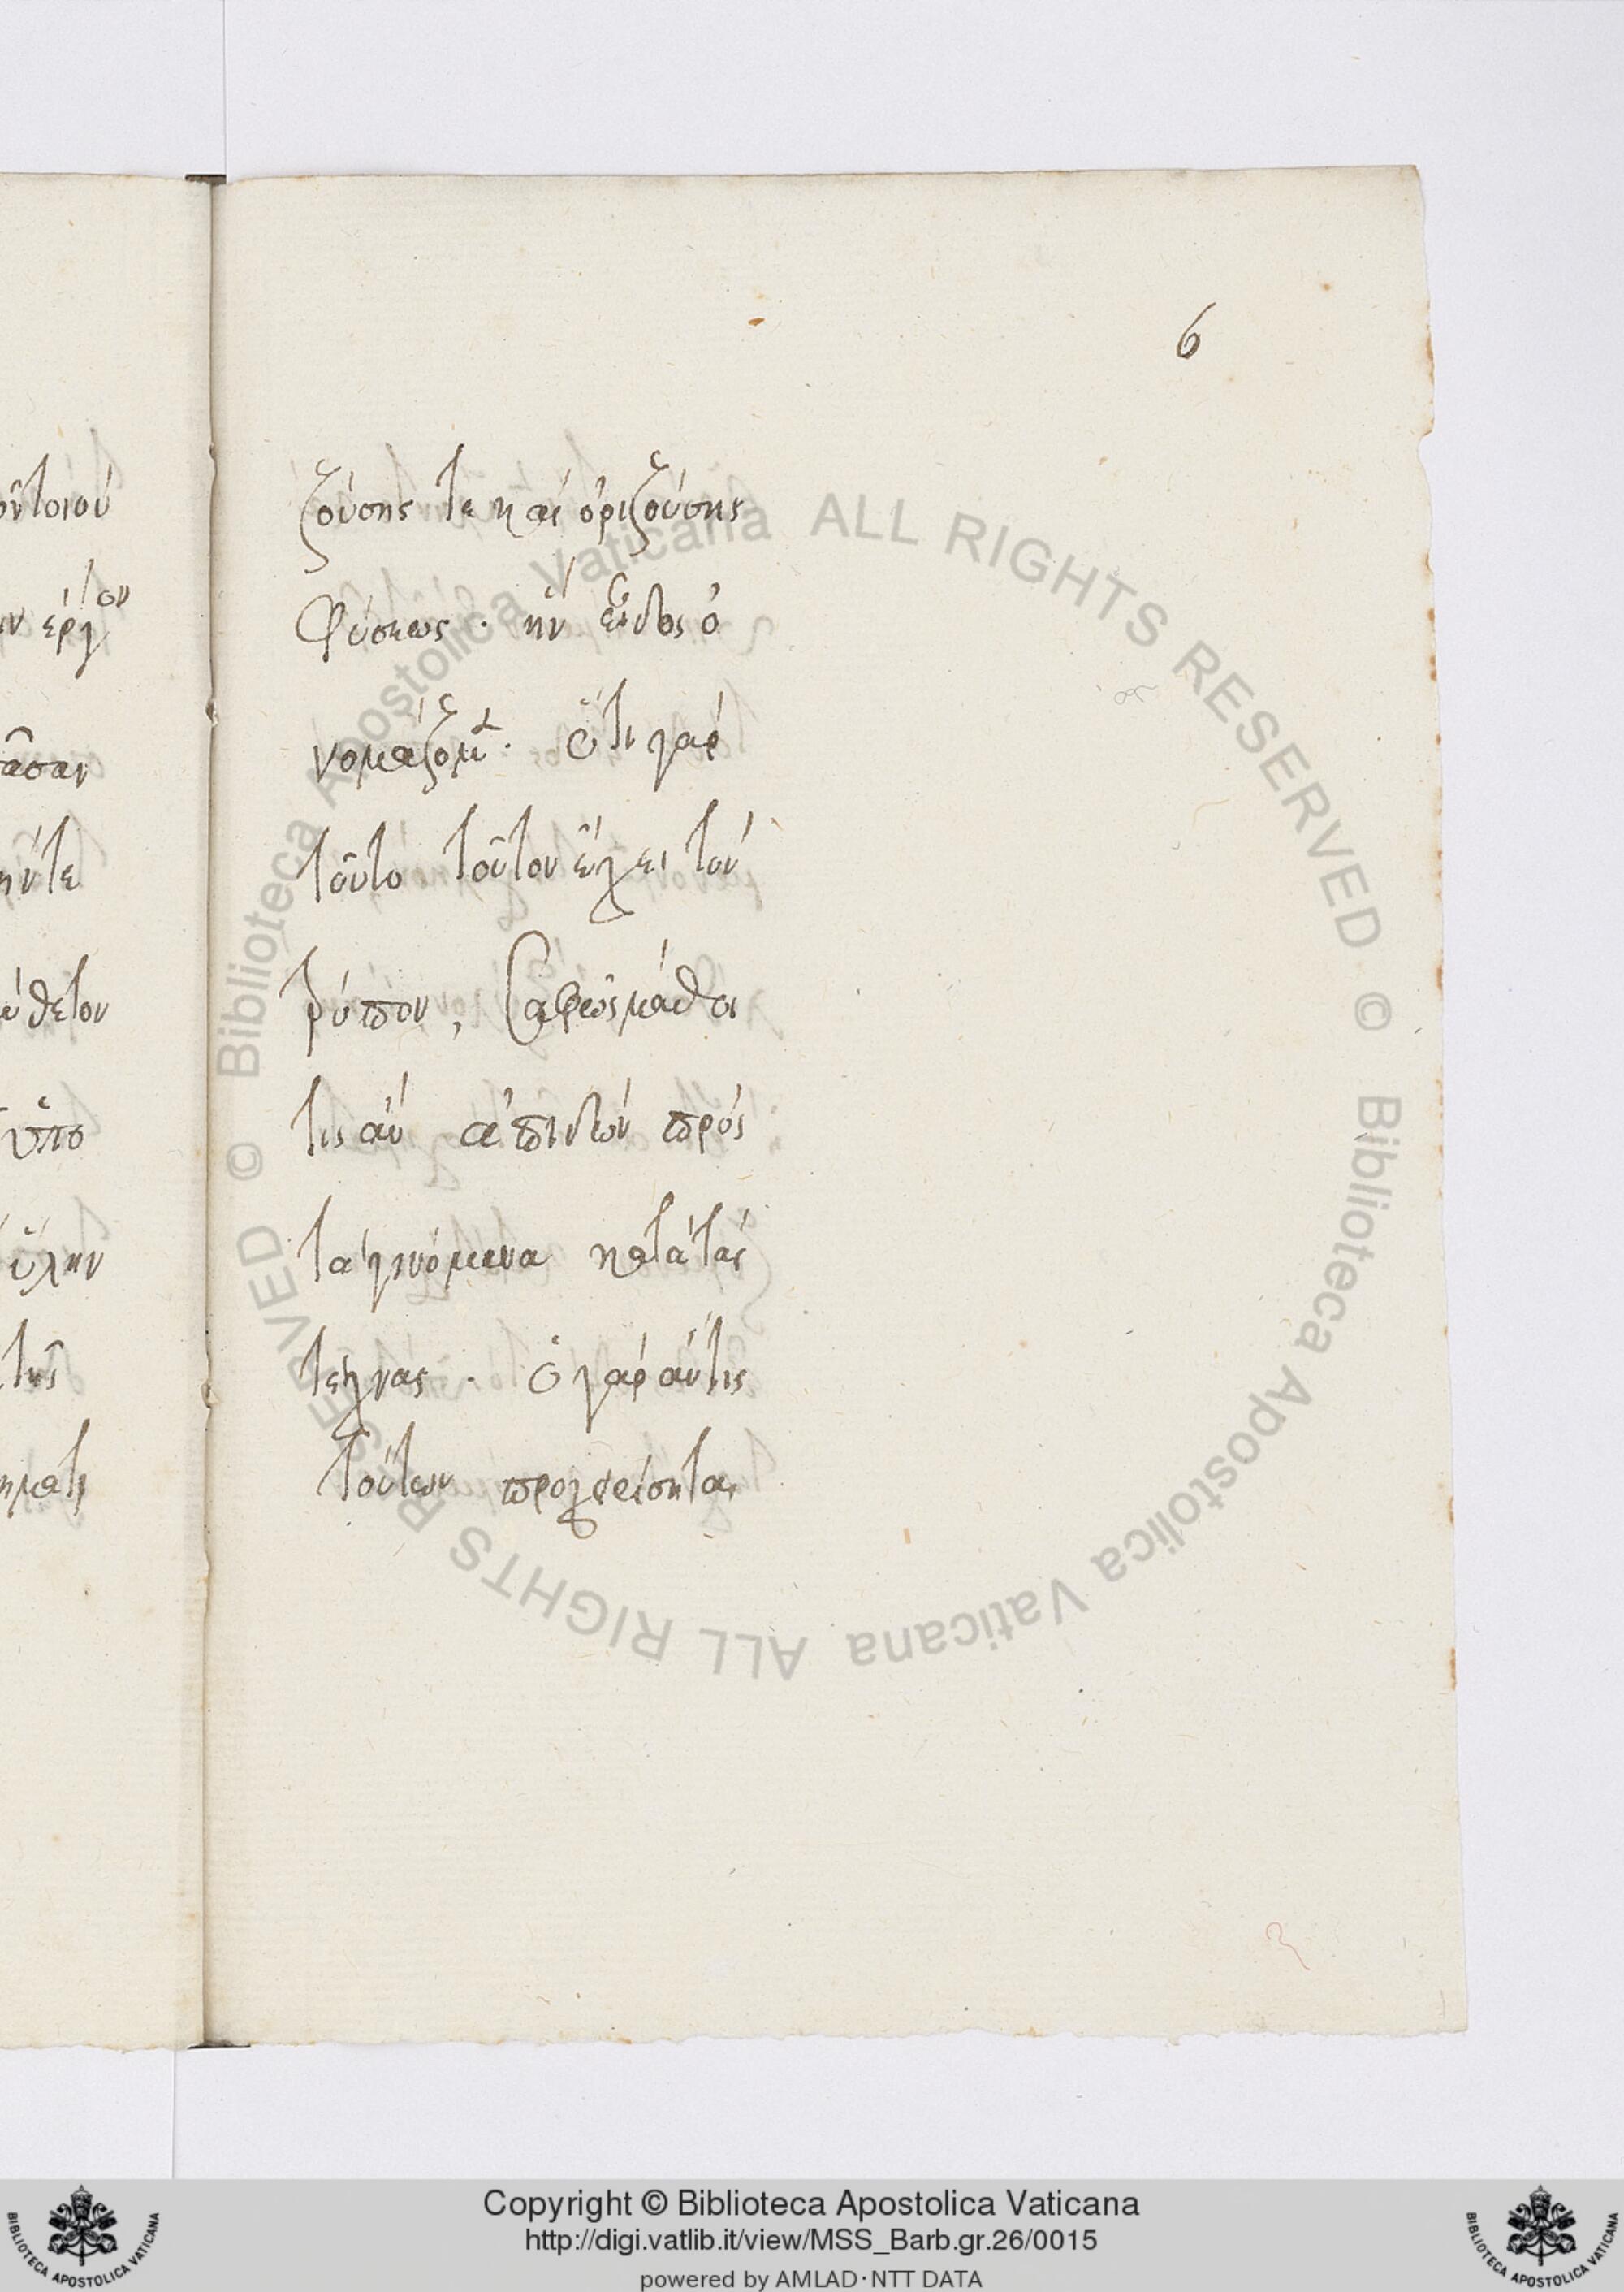 6
ὸντοιού
ν ἐργον
πᾶσαν
ήντε
ύθετον
ὑπο
ὕλην
τῆς
ηματι
ζούσης τε καὶ ὁριζούσης
φύσεως · ἣν εἶδος ὀ
νομάζομ̅. Ὅτι γὰρ
τοῦτο τοῦτον ἔχει τὸν
τρόπον, σαφῶς μάθοι
τις ἂν ἀπιδὼν πρὸς
τὰ γινόμενα κατὰ τὰς
τέχνας · ὃ γὰρ ἄν τις
τούτων προχειρίσηται
Biblioteca Apostolica Vaticana ALL RIGHTS RESERVED ©
Biblioteca Apostolica Vaticana ALL RIGHTS RESERVED ©
Copyright © Biblioteca Apostolica Vaticana
http://digi.vatlib.it/view/MSS_Barb.gr.26/0015
powered by AMLAD·NTT DATA
BIBLIOTECA APOSTOLICA VATICANA
BIBLIOTECA APOSTOLICA VATICANA